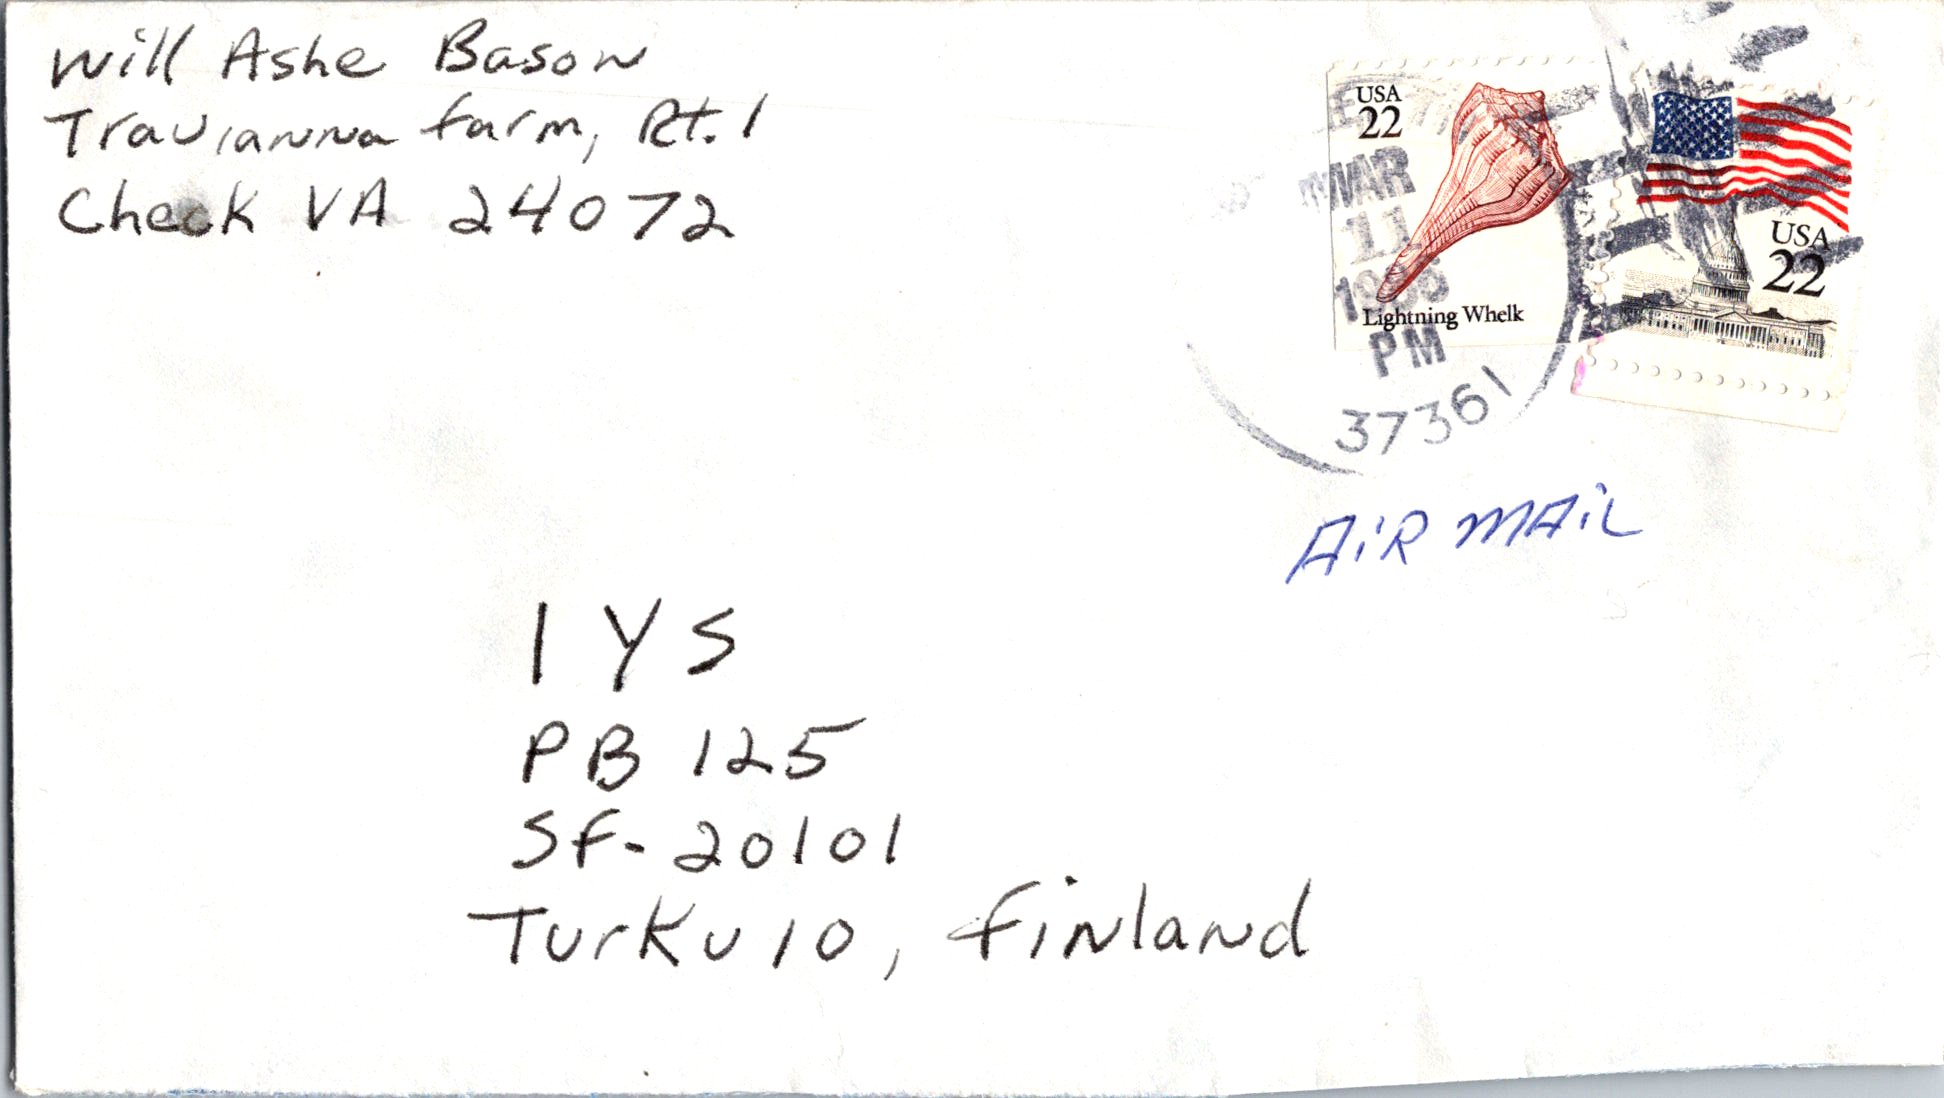 Will Ashe Bason
Travianna farm, Rt. 1
Check VA 24072
USA
22
Lightning Whelk
USA
22
MAR
11
PM
37361
AIR MAIL
IYS
PB 125
SF-20101
Turku 10, Finland